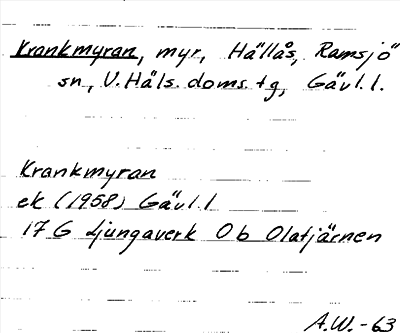 Krankmyran, myr, Hällås, Ramsjö
sn, V. Häls. doms. tg, Gävl. l.
Krankmyran
ek (1958) Gävl. l
17 G Ljungaverk Ob Olatjärnen
A.W. - 63